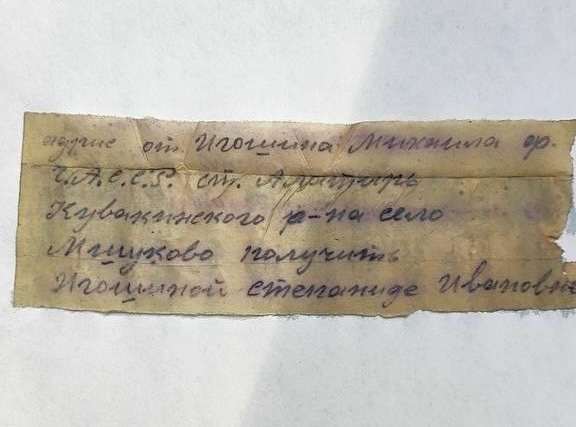 адрис от Игошина Михаила ф.
Ч.А.С.С.Р. ст. Алатырь
Кувакинского р-на село
Мишуково получить
Игошиной степаниде Ивановн